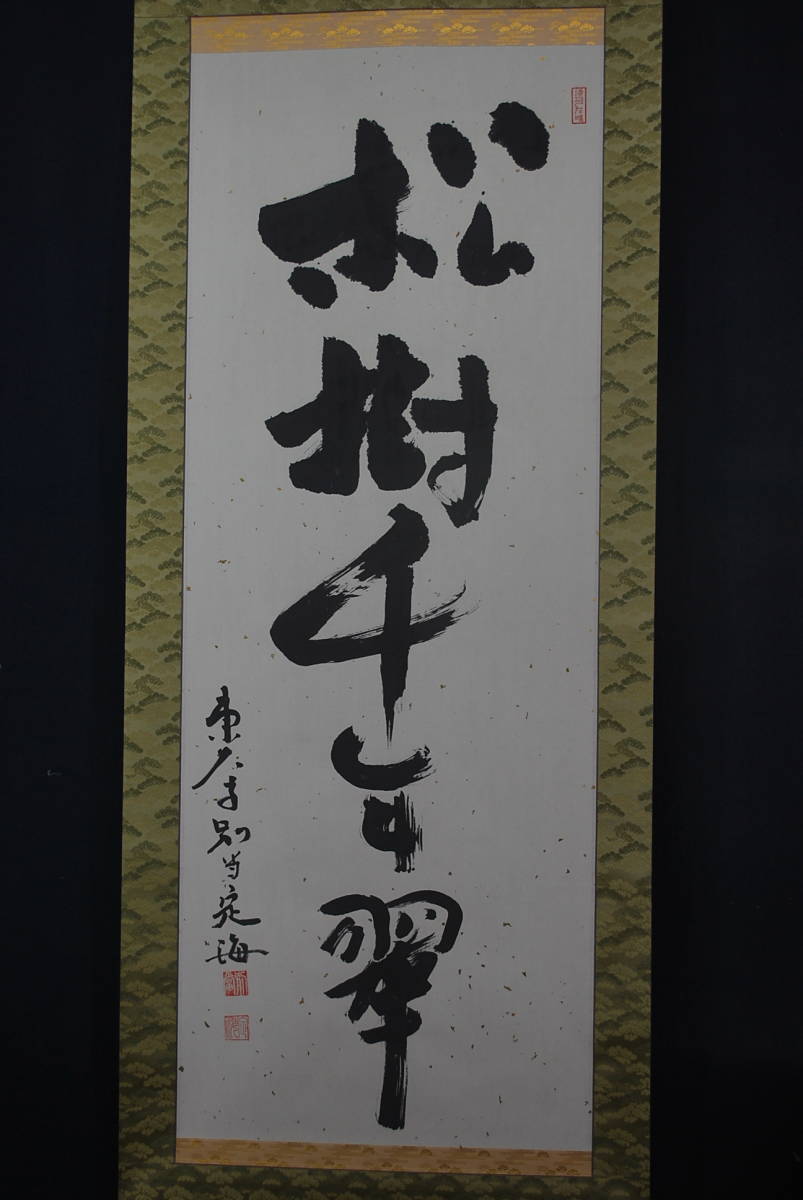 松樹千年翠
東大寺別当定海